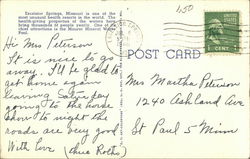 Excelsior Springs, Missouri is one of the
most unusual health resorts in the world. The
health-giving properties of the waters here
bring thousands of people yearly. One of the
chief attractions is the Mineral Water
Pool.
Hi Mrs Peterson
It is nice to go
away. I'll be glad to
get home again
leaving Saturday
going to the horse
show to night the
roads are very good
With Love
(Miss Rolto)
POST CARD
150
1 CENT
Mrs Martha Peterson
1240 Ashland Ave
St Paul 5 Minn